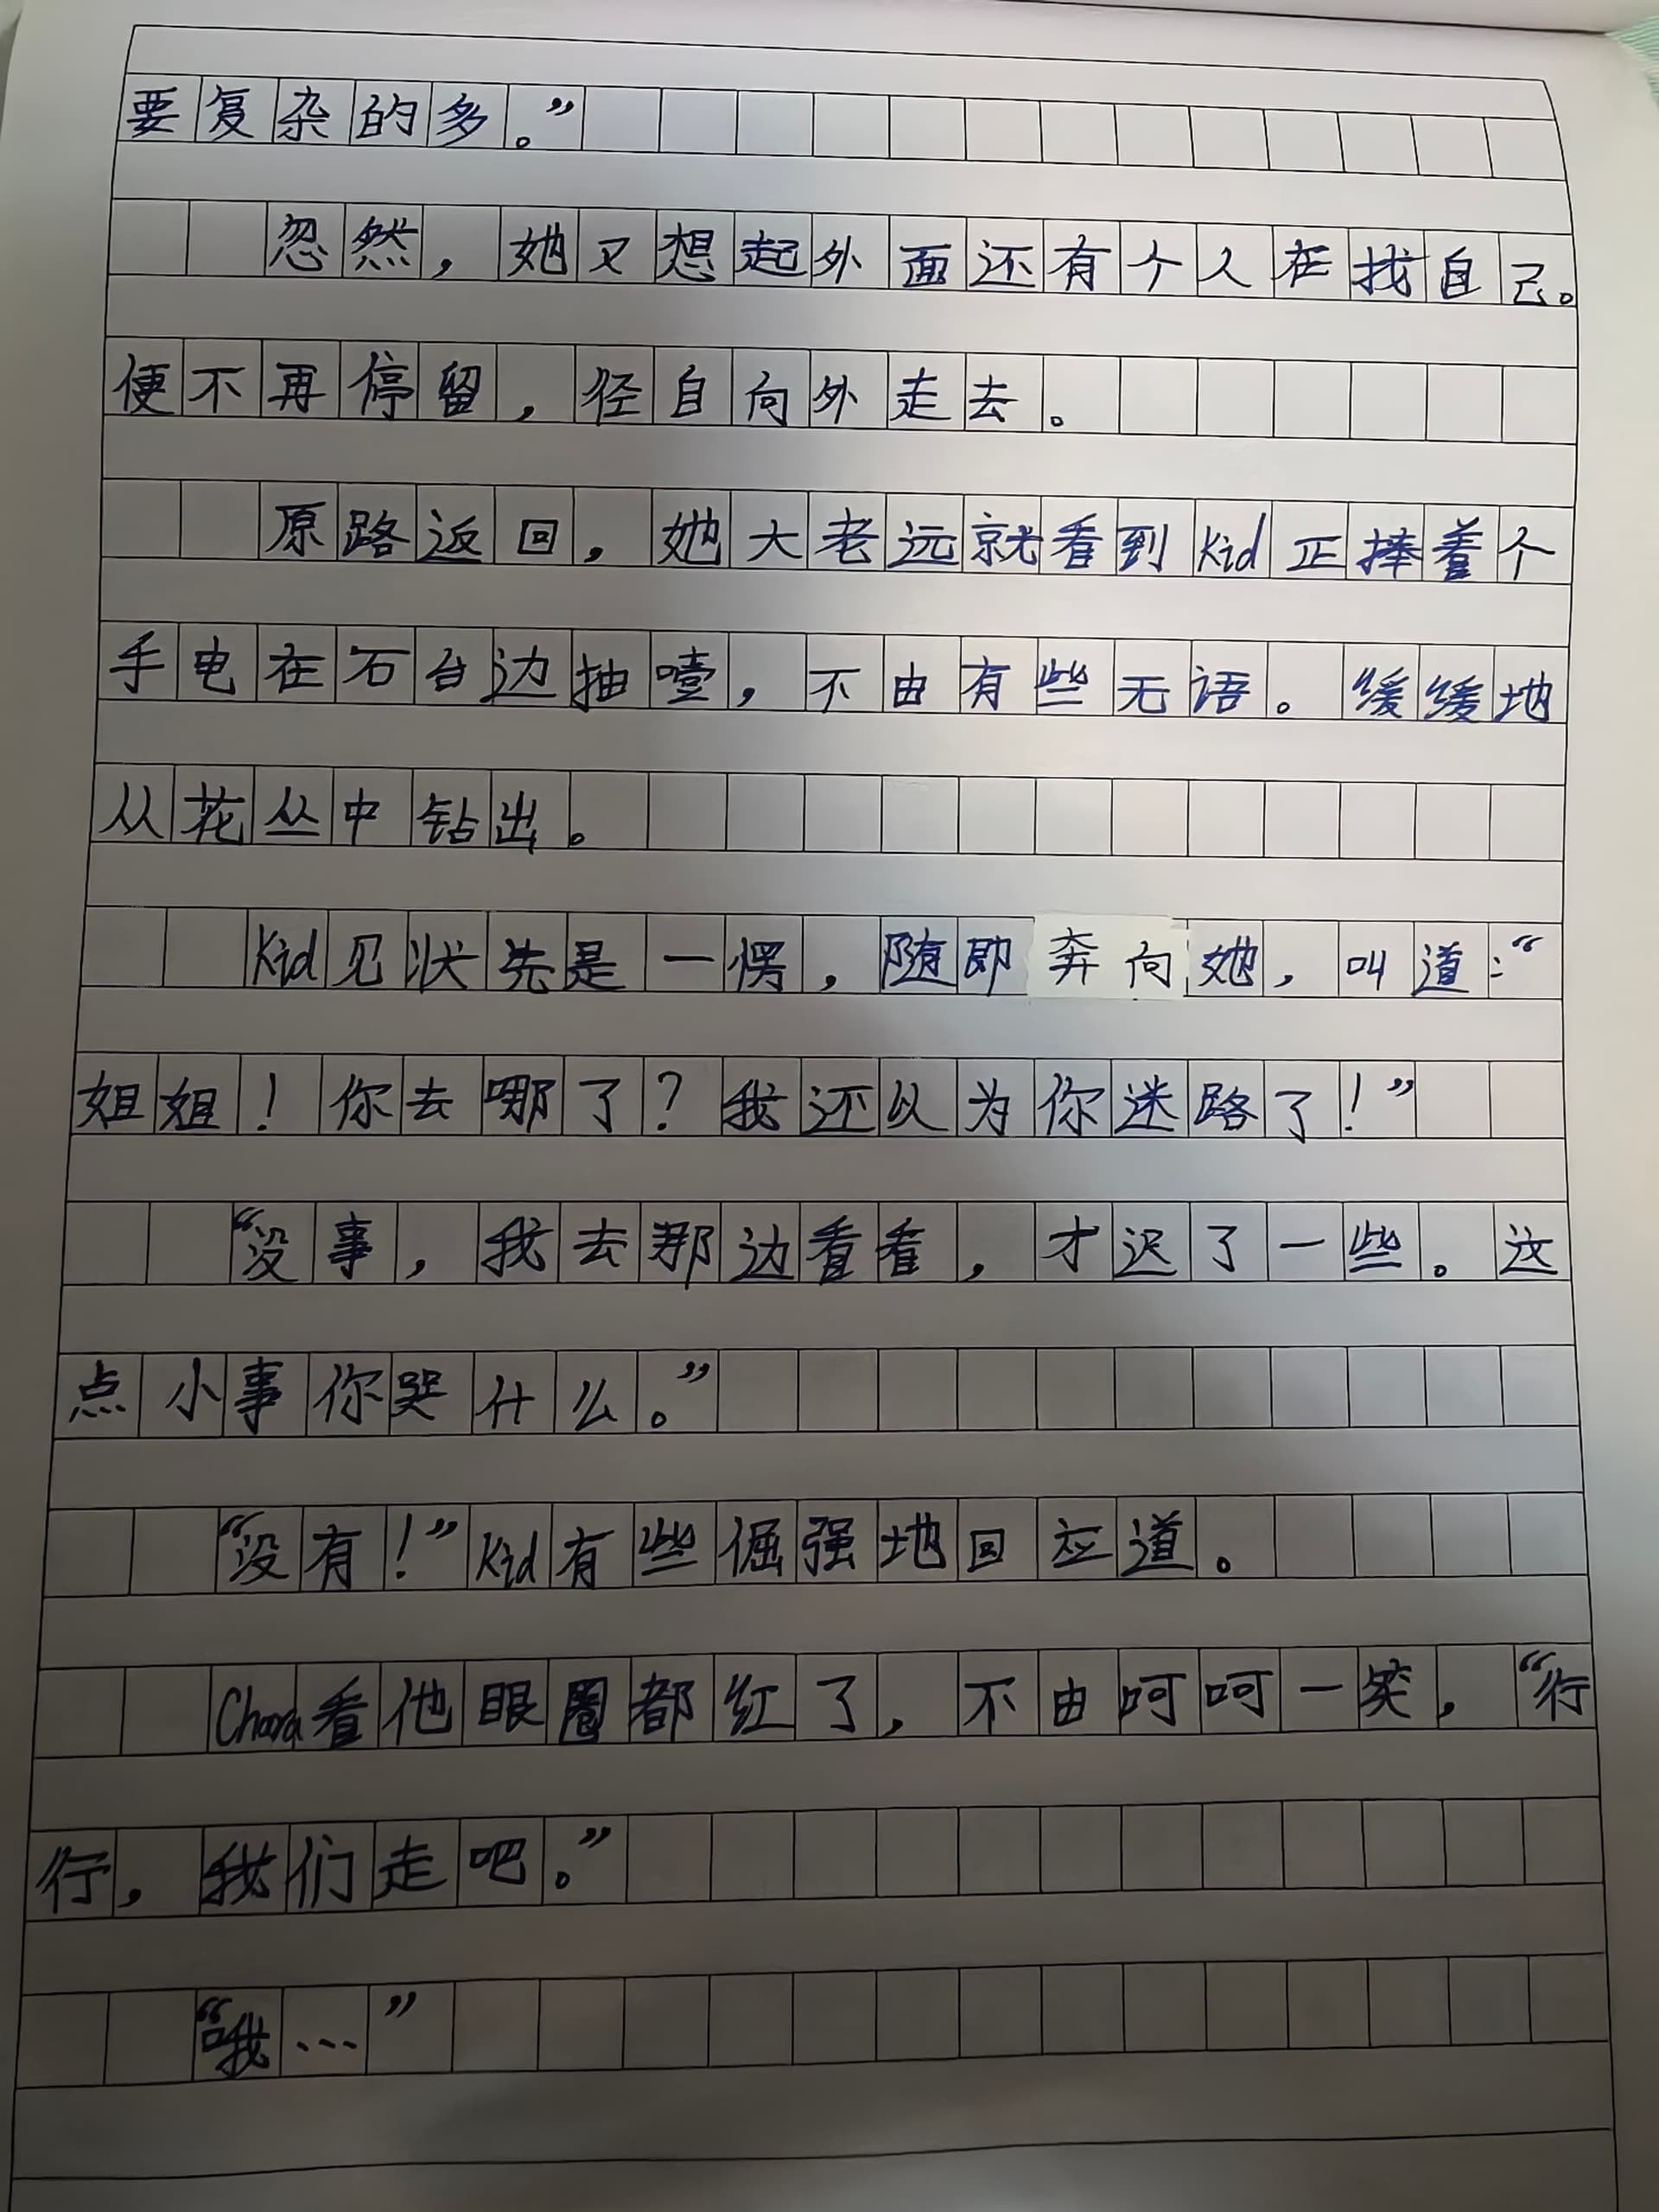 要复杂的多。”
忽然，她又想起外面还有个人在找自己。
便不再停留，径自向外走去。
原路返回，她大老远就看到Kid正捧着个
手电在石台边抽噎，不由有些无语。缓缓地
从花丛中钻出。
Kid见状先是一愣，随即奔向她，叫道：“
姐姐！你去哪了？我还以为你迷路了！”
“没事，我去那边看看，才迟了一些。这
点小事你哭什么。”
“没有！”Kid有些倔强地回应道。
Chara看他眼圈都红了，不由呵呵一笑，“行
行，我们走吧。”
“哦…”